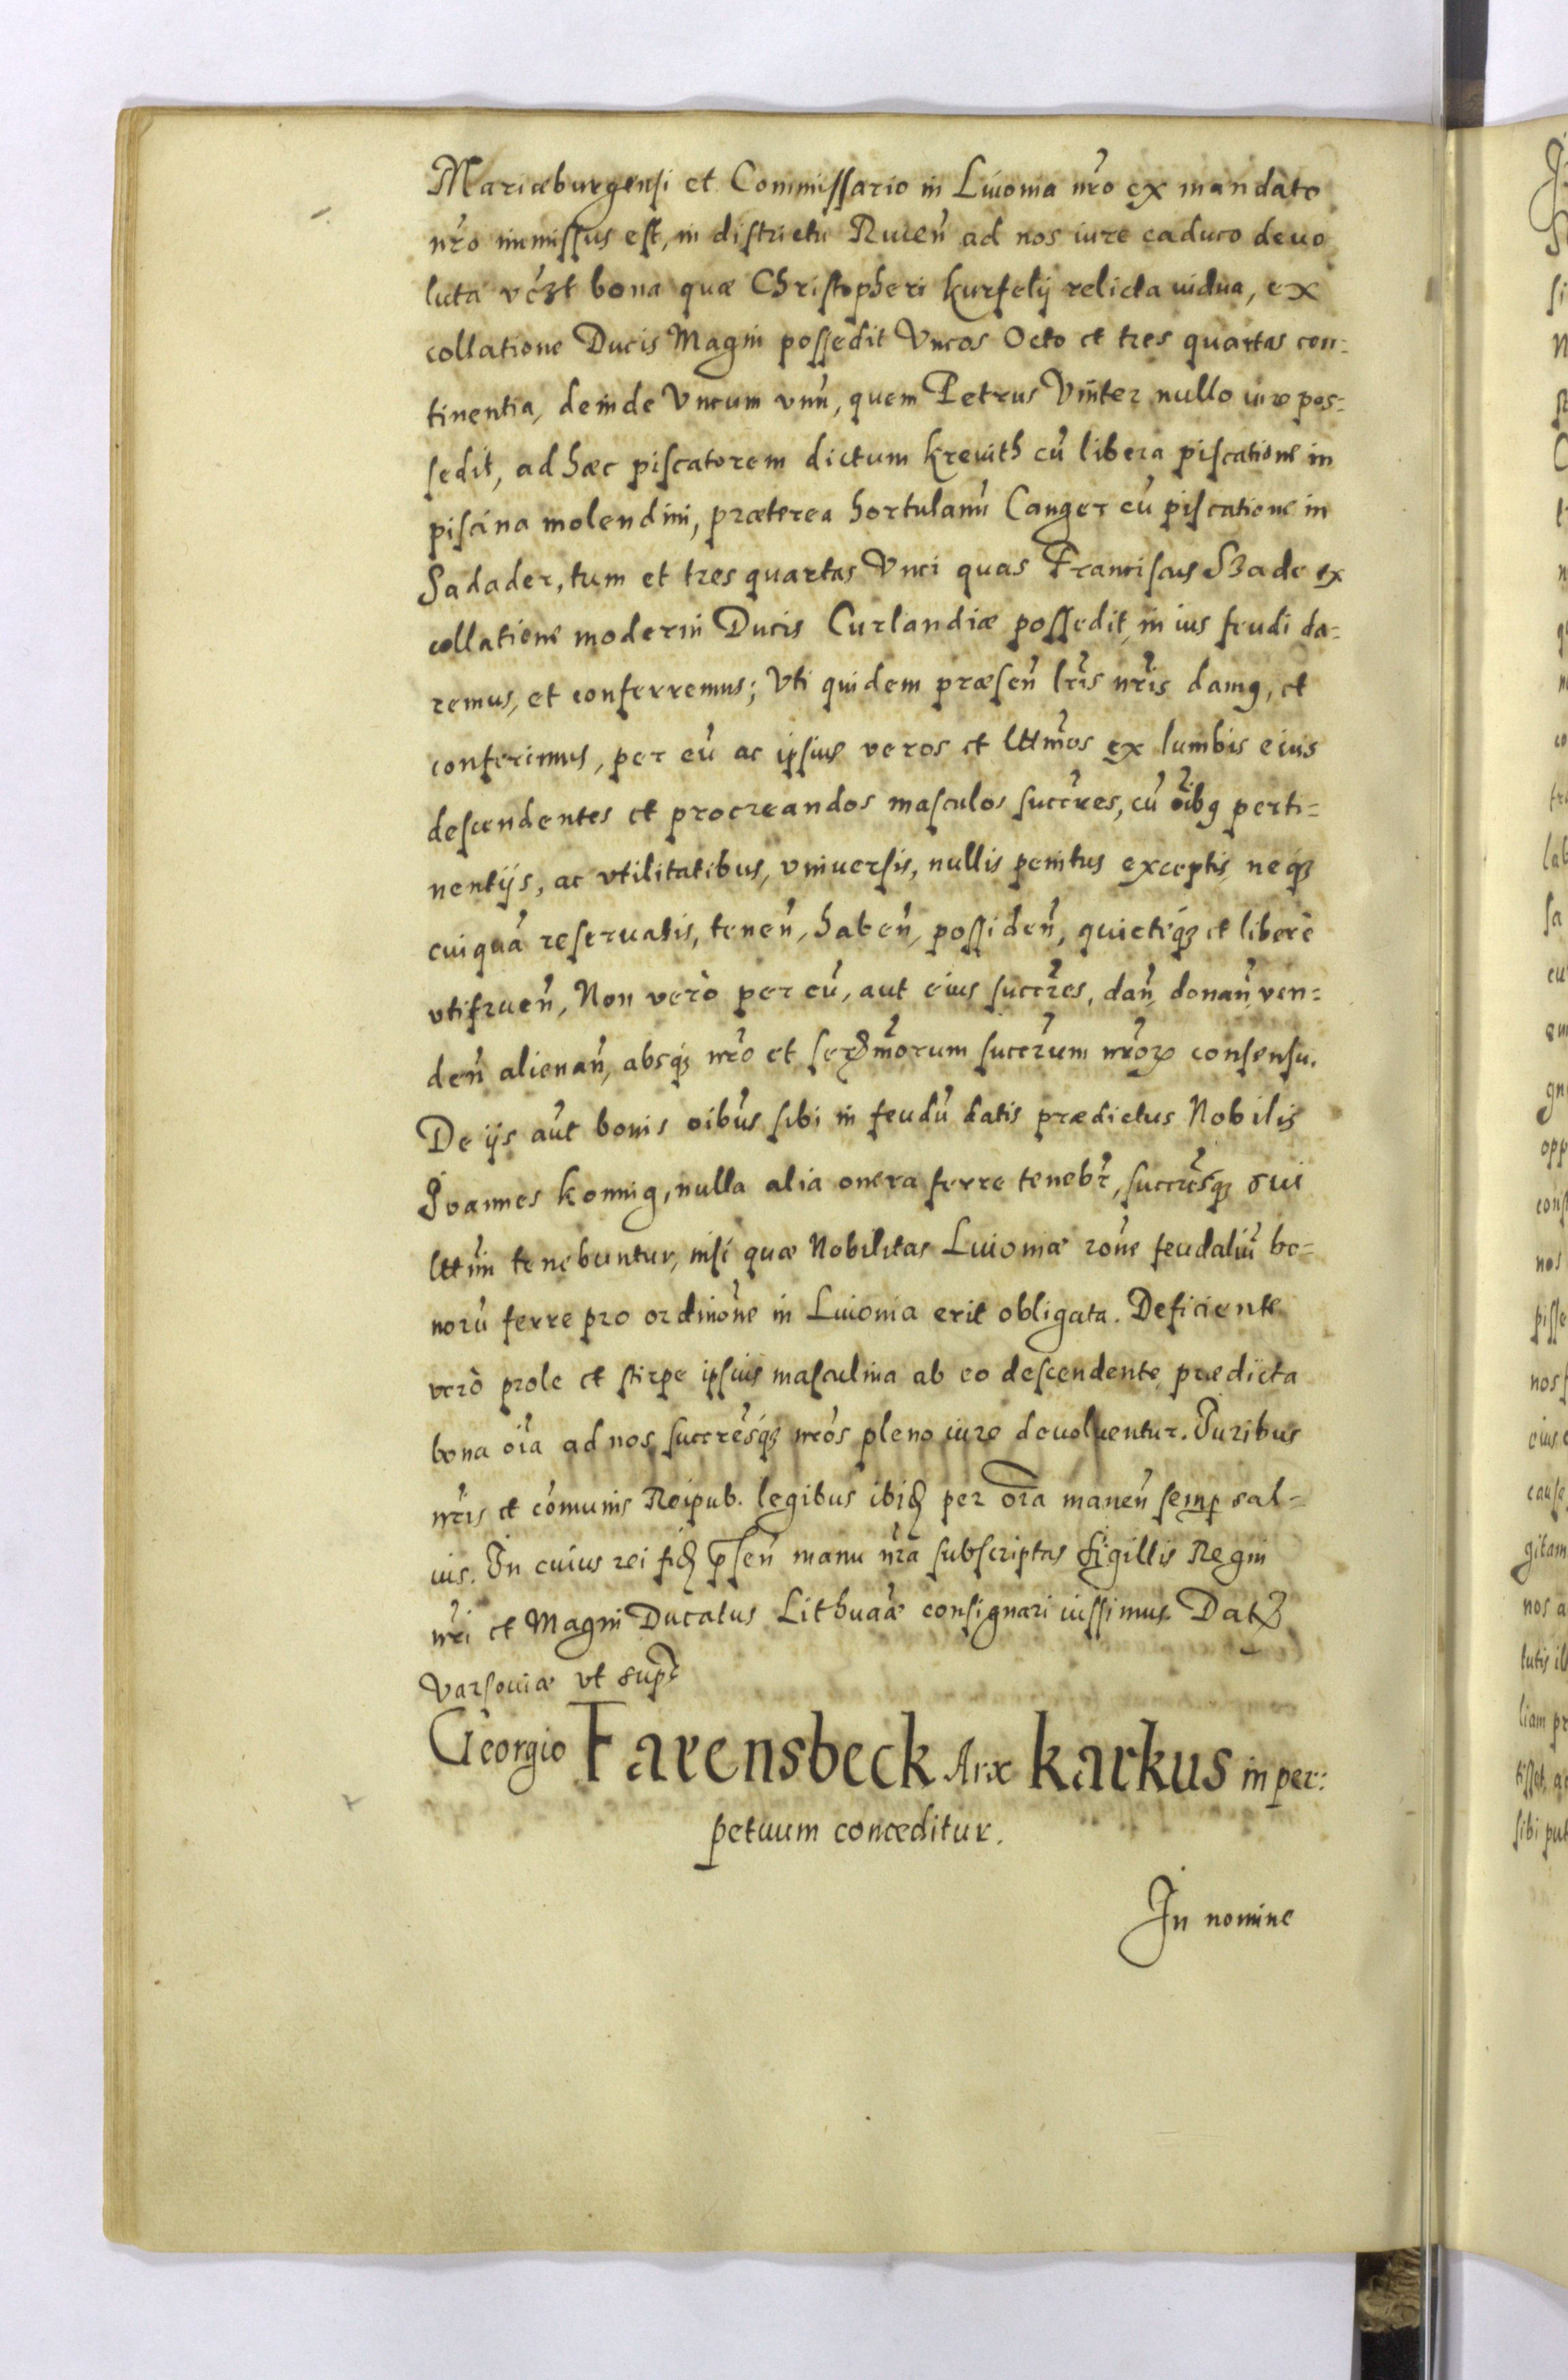 Mariæburgensi et Commissario in Liuonia nr̃o ex mandato
nr̃o immissus est, in districtu Ruien̄ ad nos iure caduco deuo
luta vczt bona quæ Christopheri kurselij relicta uidua, ex
collatione Ducis Magni possedit Vncos Octo et tres quartas con=
tinentia, deinde Vncum vnū, quem Petrus Vinter nullo iure pos=
sedit, ad hæc piscatorem dictum kreuith cū libera piscatione in
piscina molendini, præterea hortulanū Canger cū piscatione in
Sadader, tum et tres quartas Vnci quas Franciscus Szade ex
collatione moderni Ducis Curlandiæ possedit, in ius feudi da=
remus, et conferremus; Vti quidem præsen̄ lr̃is nr̃is damq, et
conferimus, per eū ac ipsius veros et lttmos ex lumbis eius
descendentes et procreandos masculos succr̃es, cū oĩbq perti=
nentijs, ac vtilitatibus, vniuersis, nullis penitus exceptis, neqz
cuiquā reseruatis, tenen̄, haben̄, possiden̄, quieteqz et liberè
vtifruen̄, Non verò per eū, aut eius succr̃es, dan̄, donan̄, ven=
den̄ alienan̄, absqz nr̃o et sermorum succr̃um nr̃or consensu.
De ijs aūt bonis oĩbus sibi in feudū datis prædictus Nobilis
Joannes konnig, nulla alia onera ferre tenebr̃, succr̃esqz sui
lttimi tenebuntur, nisi quæ Nobilitas Liuoniæ rõne feudaliū bo=
norū ferre pro ordinõne in Liuonia erit obligata. Deficiente
verò prole et stirpe ipsius masculina ab eo descendente prædicta
bona oĩa ad nos succr̃esqz nr̃os pleno iure deuoluentur. Juribus
nr̃is et cōmunis Reipub. legibus ibid per oĩa manen̄ semp sal=
uis. In cuius rei fid pn̄sen̄ manu nr̃a subscriptas sigillis Regni
nr̃i et Magni Ducatus Lithuaā consignari iussimus. Datz
Varsouiæ vt supr̃
Georgio Farensbeck Arx karkus in per:
petuum conceditur.
In nomine